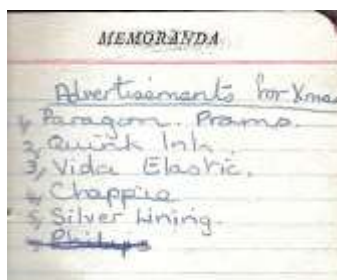 MEMORANDA
Advertisements for Xmas
1, Paragon. Prams.
2, Quink Ink.
3, Vida Elastic.
4, Chappie
5, Silver Lining.
Philips